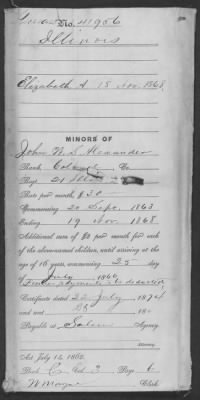 No. 41956
Illinois
Elizabeth A 18 Nov. 1868
MINORS OF
John M. S. Alexander
Rank, Colonel Co.
Regt 21 Ill
Rate per month, $30
Commencing 20 Sept. 1863
Ending 19 Nov 1868
Additional sum of $2 per month for each
of the above-named children, until arriving at the
age of 16 years, commencing 25
of July 1866
Former payments to be deducted
Certificate dated 22 July 1874
and sent 186
Payable at Salem Agency.
Attorney.
Act July 14, 1862.
Book C Vol. 3 Page 6
Clerk.